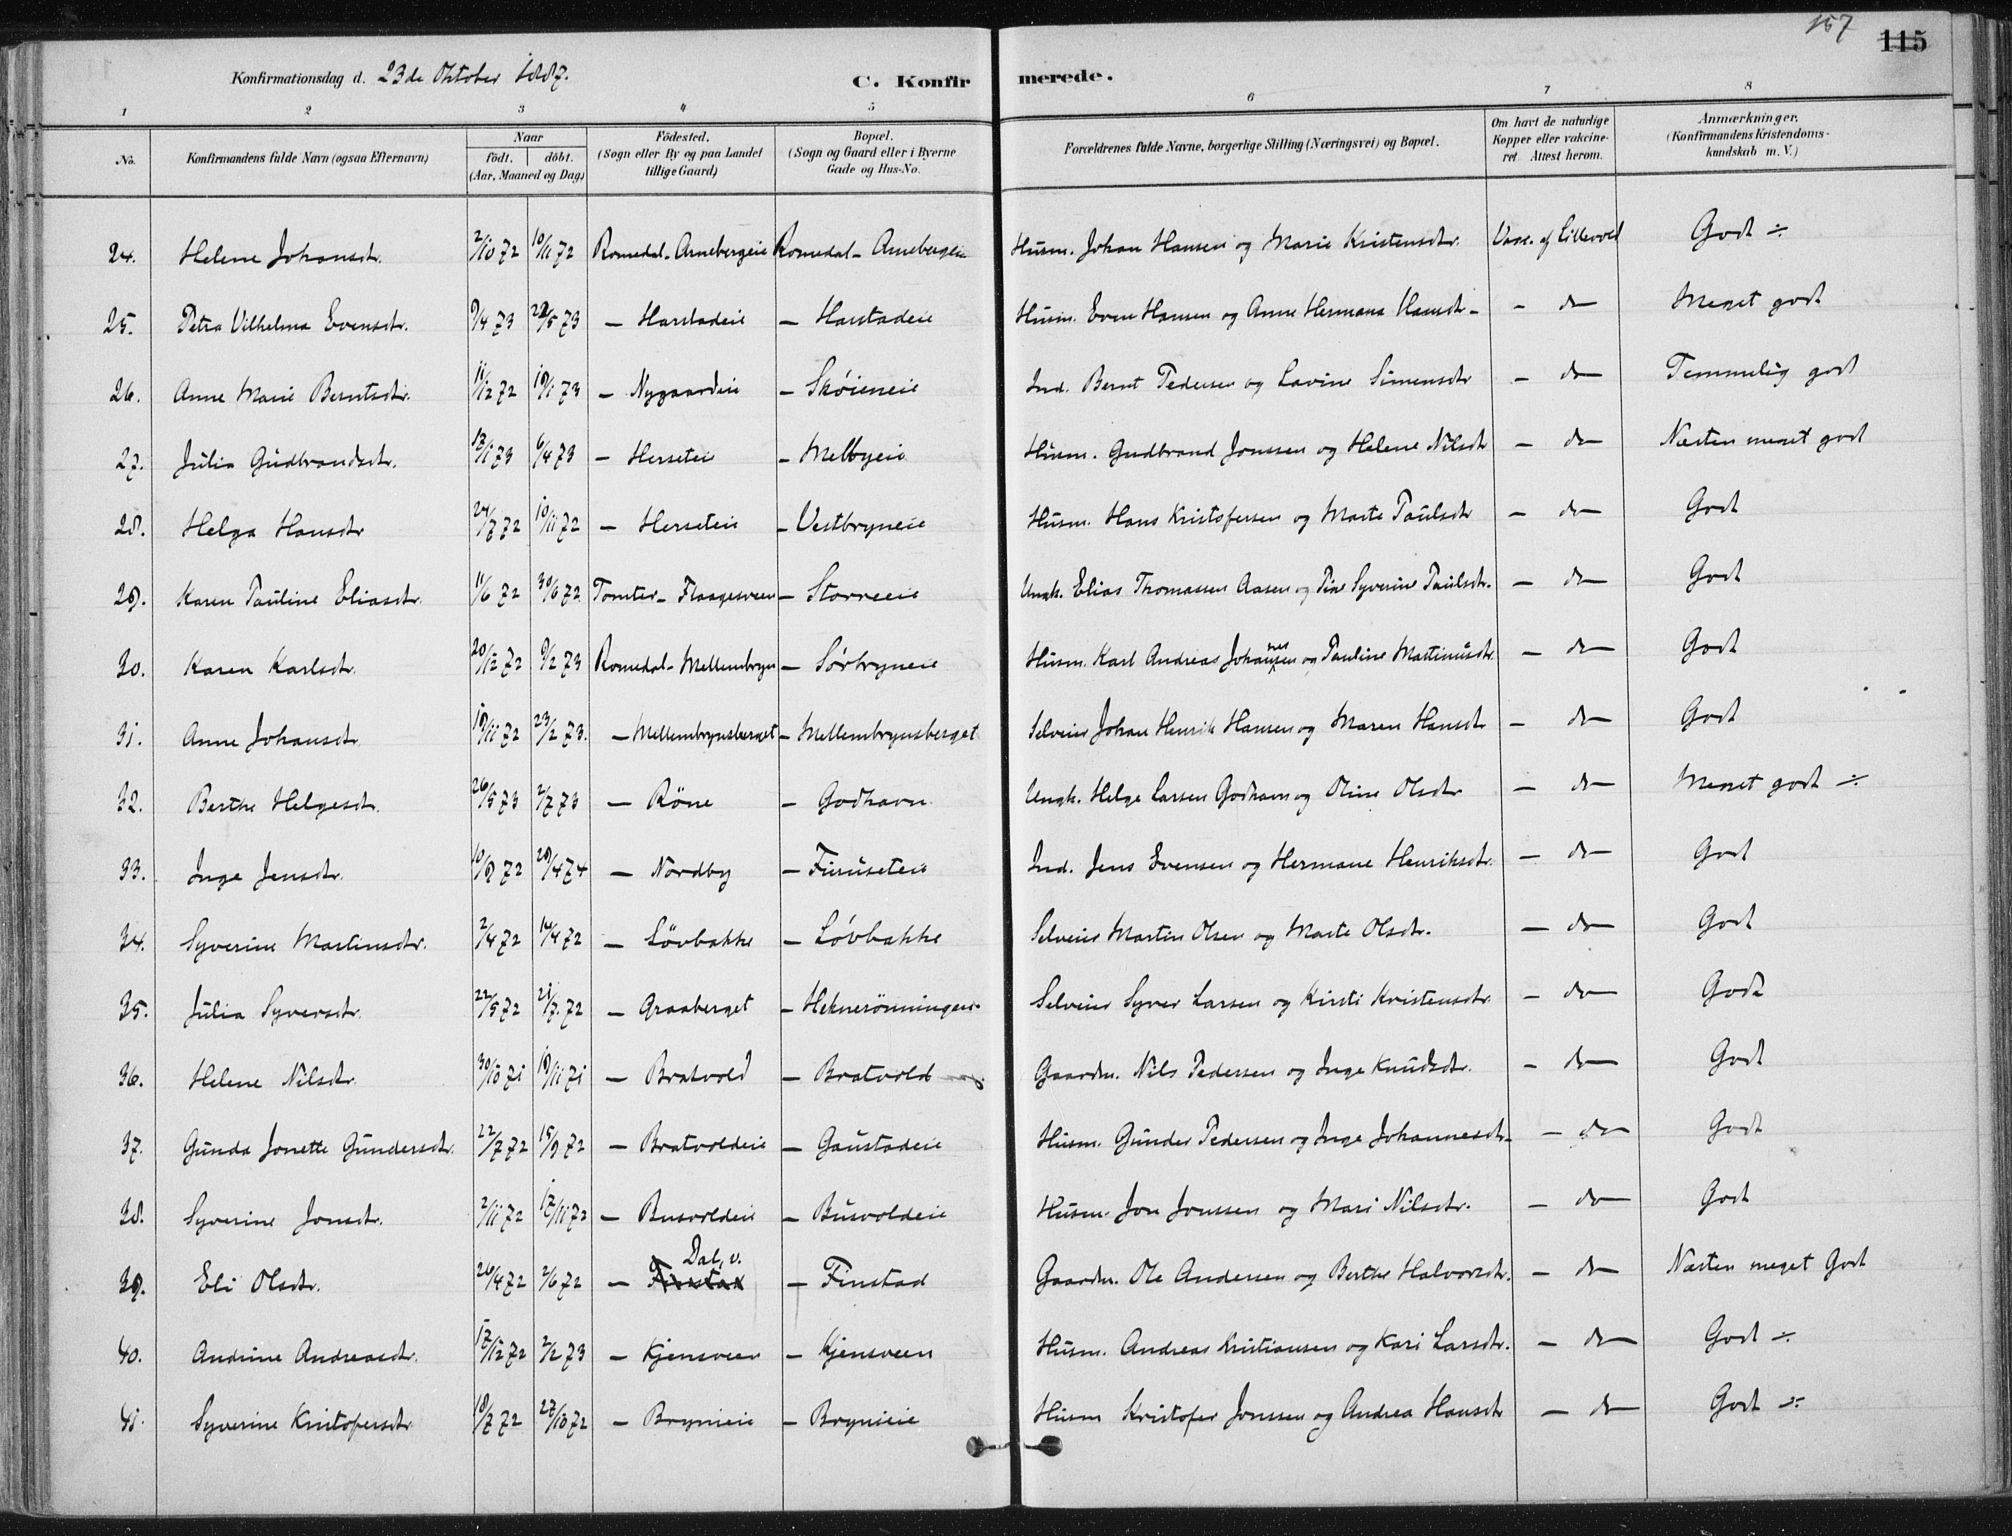 157
115
Konfirmationsdag d. 23de Oktober 1887.
C. Konfirmerede.
1 2 3 4 5 6 7 8
No. Konfirmandens fulde Navn (ogsaa Efternavn) Naar födt. döbt. (Aar, Maaned og Dag) Födested. (Sogn eller By og paa Landet tillige Gaard) Bopæl. (Sogn og Gaard eller i Byerne Gade og Hus-No. Forældrenes fulde Navne, borgerlige Stilling (Næringsvei) og Bopæl. Om havt de naturlige Kopper eller vakcineret. Attest herom. Anmærkninger. (Konfirmandens Kristendomskundskab m. V.)
24. Helene Johansdtr. 2/10 72 10/11 72 Romedal - Arnebergeie Romedal - Arnebergeie Husm. Johan Hansen og Marie Kristensdtr. Vacc. af Lillevold Godt ÷
25. Petra Vilhelma Evensdtr. 9/4 73 22/5 73 — Harstadeie — Harstadeie Husm. Even Hansen og Anne Hermana Hansdtr — do Meget godt
26. Anne Marie Berntsdtr. 11/12 72 19/1 73 — Nygaardeie — Skøieneie Ind. Bernt Pedersen og Lavine Simensdtr — do Temmelig godt
27. Julia Gudbrandsdtr. 17/1 73 6/4 73 — Herseteie — Melbyeie Husm. Gudbrand Jonssen og Helene Nilsdtr — do Næsten meget godt
28. Helga Hansdtr 24/7 72 10/11 72 — Herseteie — Vestbryneie Husm. Hans Kristofersen og Marte Paulsdtr — do Godt
29. Karen Pauline Eliasdtr. 11/6 72 30/6 72 Tomter - Flaagesveen — Storreeie Ungk. Elias Thomassen Aasen og Pine Syverine Paulsdtr. — do Godt
30. Karen Karlsdtr. 20/12 72 9/2 73 Romedal - Mellembryn — Sørbryneie Husm. Karl Andreas Johannesen og Pauline Martinusdtr. — do Godt
31. Anne Johansdtr 19/11 72 23/2 73. — Mellembrynsberget — Mellembrynsberget Selveier Johan Henrik Hansen og Maren Hansdtr — do Godt
32. Berthe Helgesdtr. 26/5 73 2/7 73 — Röne — Godhavn Ungk. Helge Larsen Godhavn og Oline Olsdtr — do Meget godt ÷
33. Inge Jensdtr. 10/9 72 29/4 74 — Nordby — Furuseteie Ind. Jens Evensen og Hermane Henriksdtr. — do Godt
34. Syverine Martinsdtr. 2/4 72 14/4 72 — Lövbakke — Lövbakke Selveier Martin Olsen og Marte Olsdtr. — do Godt
35. Julia Syversdtr. 22/5 72 21/7 72 — Graaberget — Heknerönningen Selveier Syver Larsen og Kirsti Kristensdtr. — do Godt
36. Helene Nilsdtr. 30/10 71 19/11 71 — Bratvold — Bratvold Gaardm. Nils Pedersen og Inge Knudsdtr. — do Godt
37. Gunda Jonette Gundersdtr. 22/7 72 15/9 72 — Bratvoldeie — Gaustadeie Husm. Gunder Pedersen og Inge Johannesdtr. — do Godt
38. Syverine Jonsdtr. 2/11 72 17/11 72 — Busvoldeie — Busvoldeie Husm. Jon Jonssen og Mari Nilsdtr. — do Godt
39. Eli Olsdtr. 26/4 72 2/6 72 — Dal, v. — Finstad Gaardm. Ole Andersen og Berthe Halvorsdtr. — do Næsten meget Godt
40. Andrine Andreasdtr. 17/12 72 2/2 73 — Kjensveen — Kjensveen Husm. Andreas Kristiansen og Kari Larsdtr. — do Godt ÷
41. Syverine Kristofersdtr 18/7 72 27/10 72 — Brynieie — Brynieie Husm Kristofer Jonssen og Andrea Hansdtr — do Godt ÷